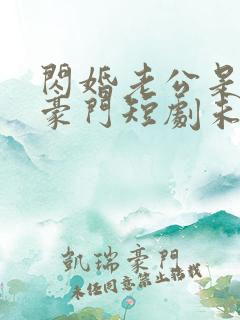 閃婚老公是
豪門短劇未
凱瑞豪門
同意禁止